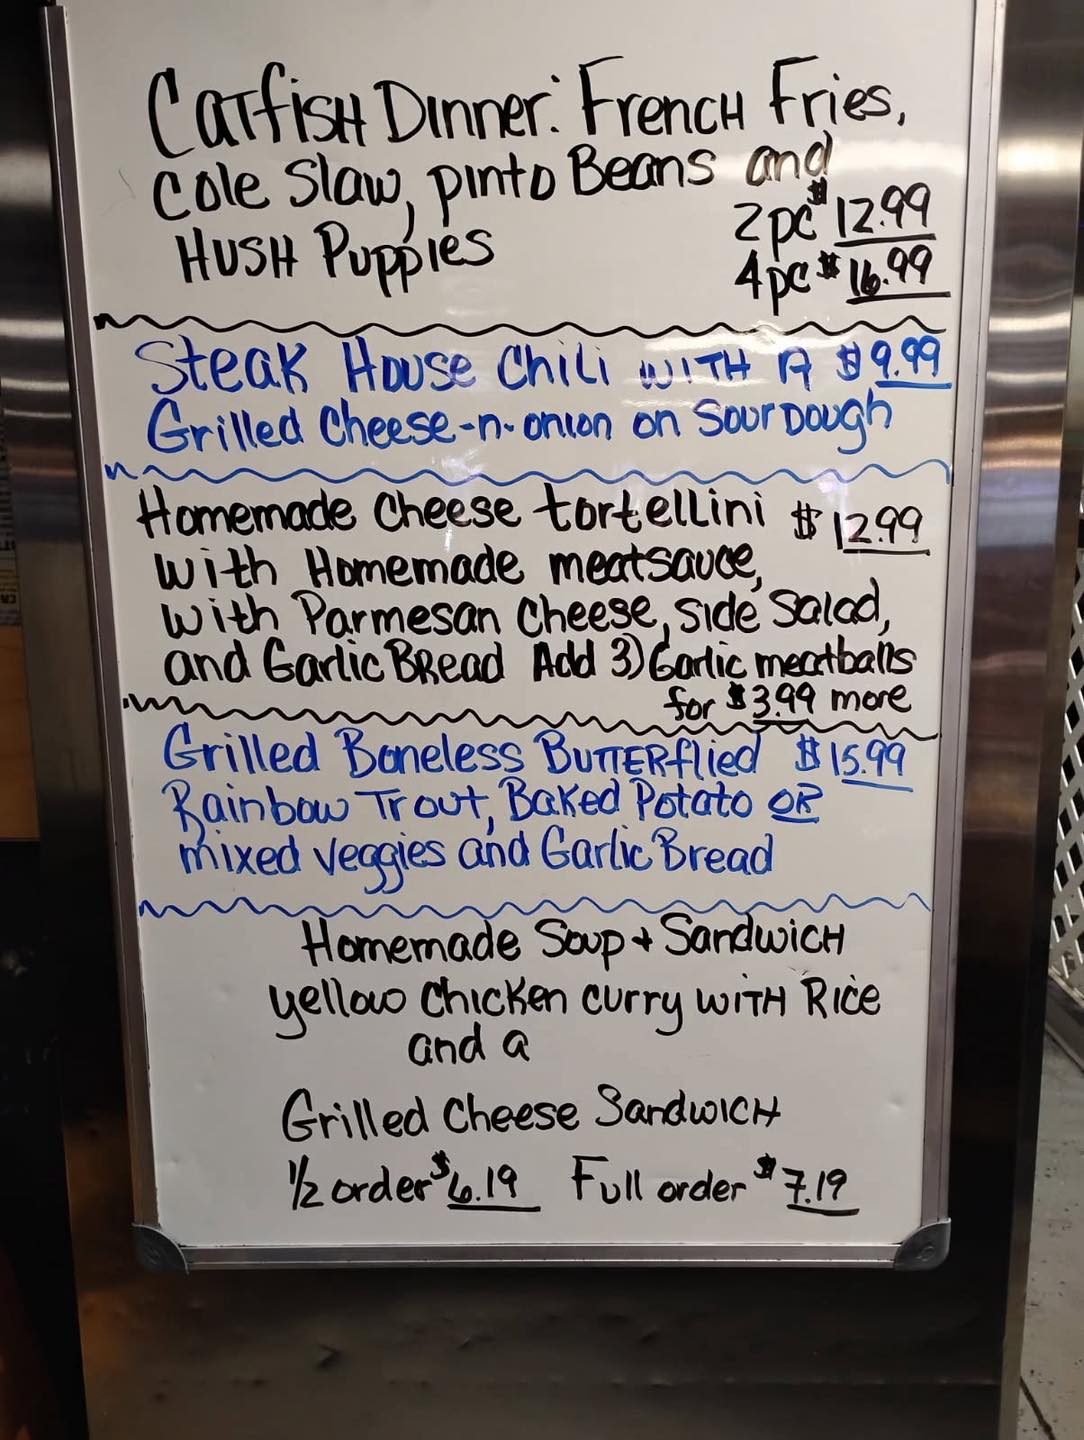 Catfish Dinner: French Fries,
Cole Slaw, pinto Beans and
Hush Puppies
2pc $12.99
4pc $16.99
Steak House Chili with A $9.99
Grilled Cheese-n-onion on Sour Dough
Homemade Cheese tortellini $12.99
with Homemade meatsauce,
with Parmesan Cheese, side Salad,
and Garlic Bread Add 3) Garlic meatballs
for $3.99 more
Grilled Boneless Butterflied $15.99
Rainbow Trout, Baked Potato OR
mixed veggies and Garlic Bread
Homemade Soup + Sandwich
yellow chicken curry with Rice
and a
Grilled Cheese Sandwich
1/2 order $6.19 Full order $7.19